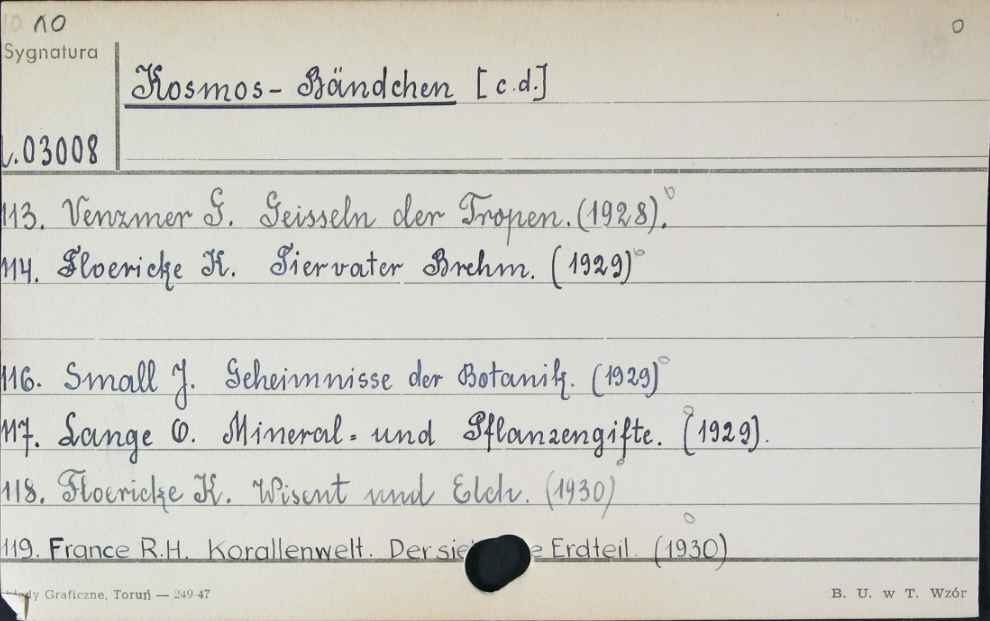 10
Sygnatura
Kosmos-Bändchen [c.d.]
L.03008
113. Venzmer G. Geisseln der Tropen. (1928).
114. Floericke K. Tiervater Brehm. (1929)
116. Small J. Geheimnisse der Botanik. (1929)
117. Lange O. Mineral- und Pflanzengifte. (1929).
118. Floericke K. Wisent und Elch. (1930)
119. France R.H. Korallenwelt. Der Erdteil. (1930)
Graficzne, Toruń — 249-47
B. U. w T. Wzór